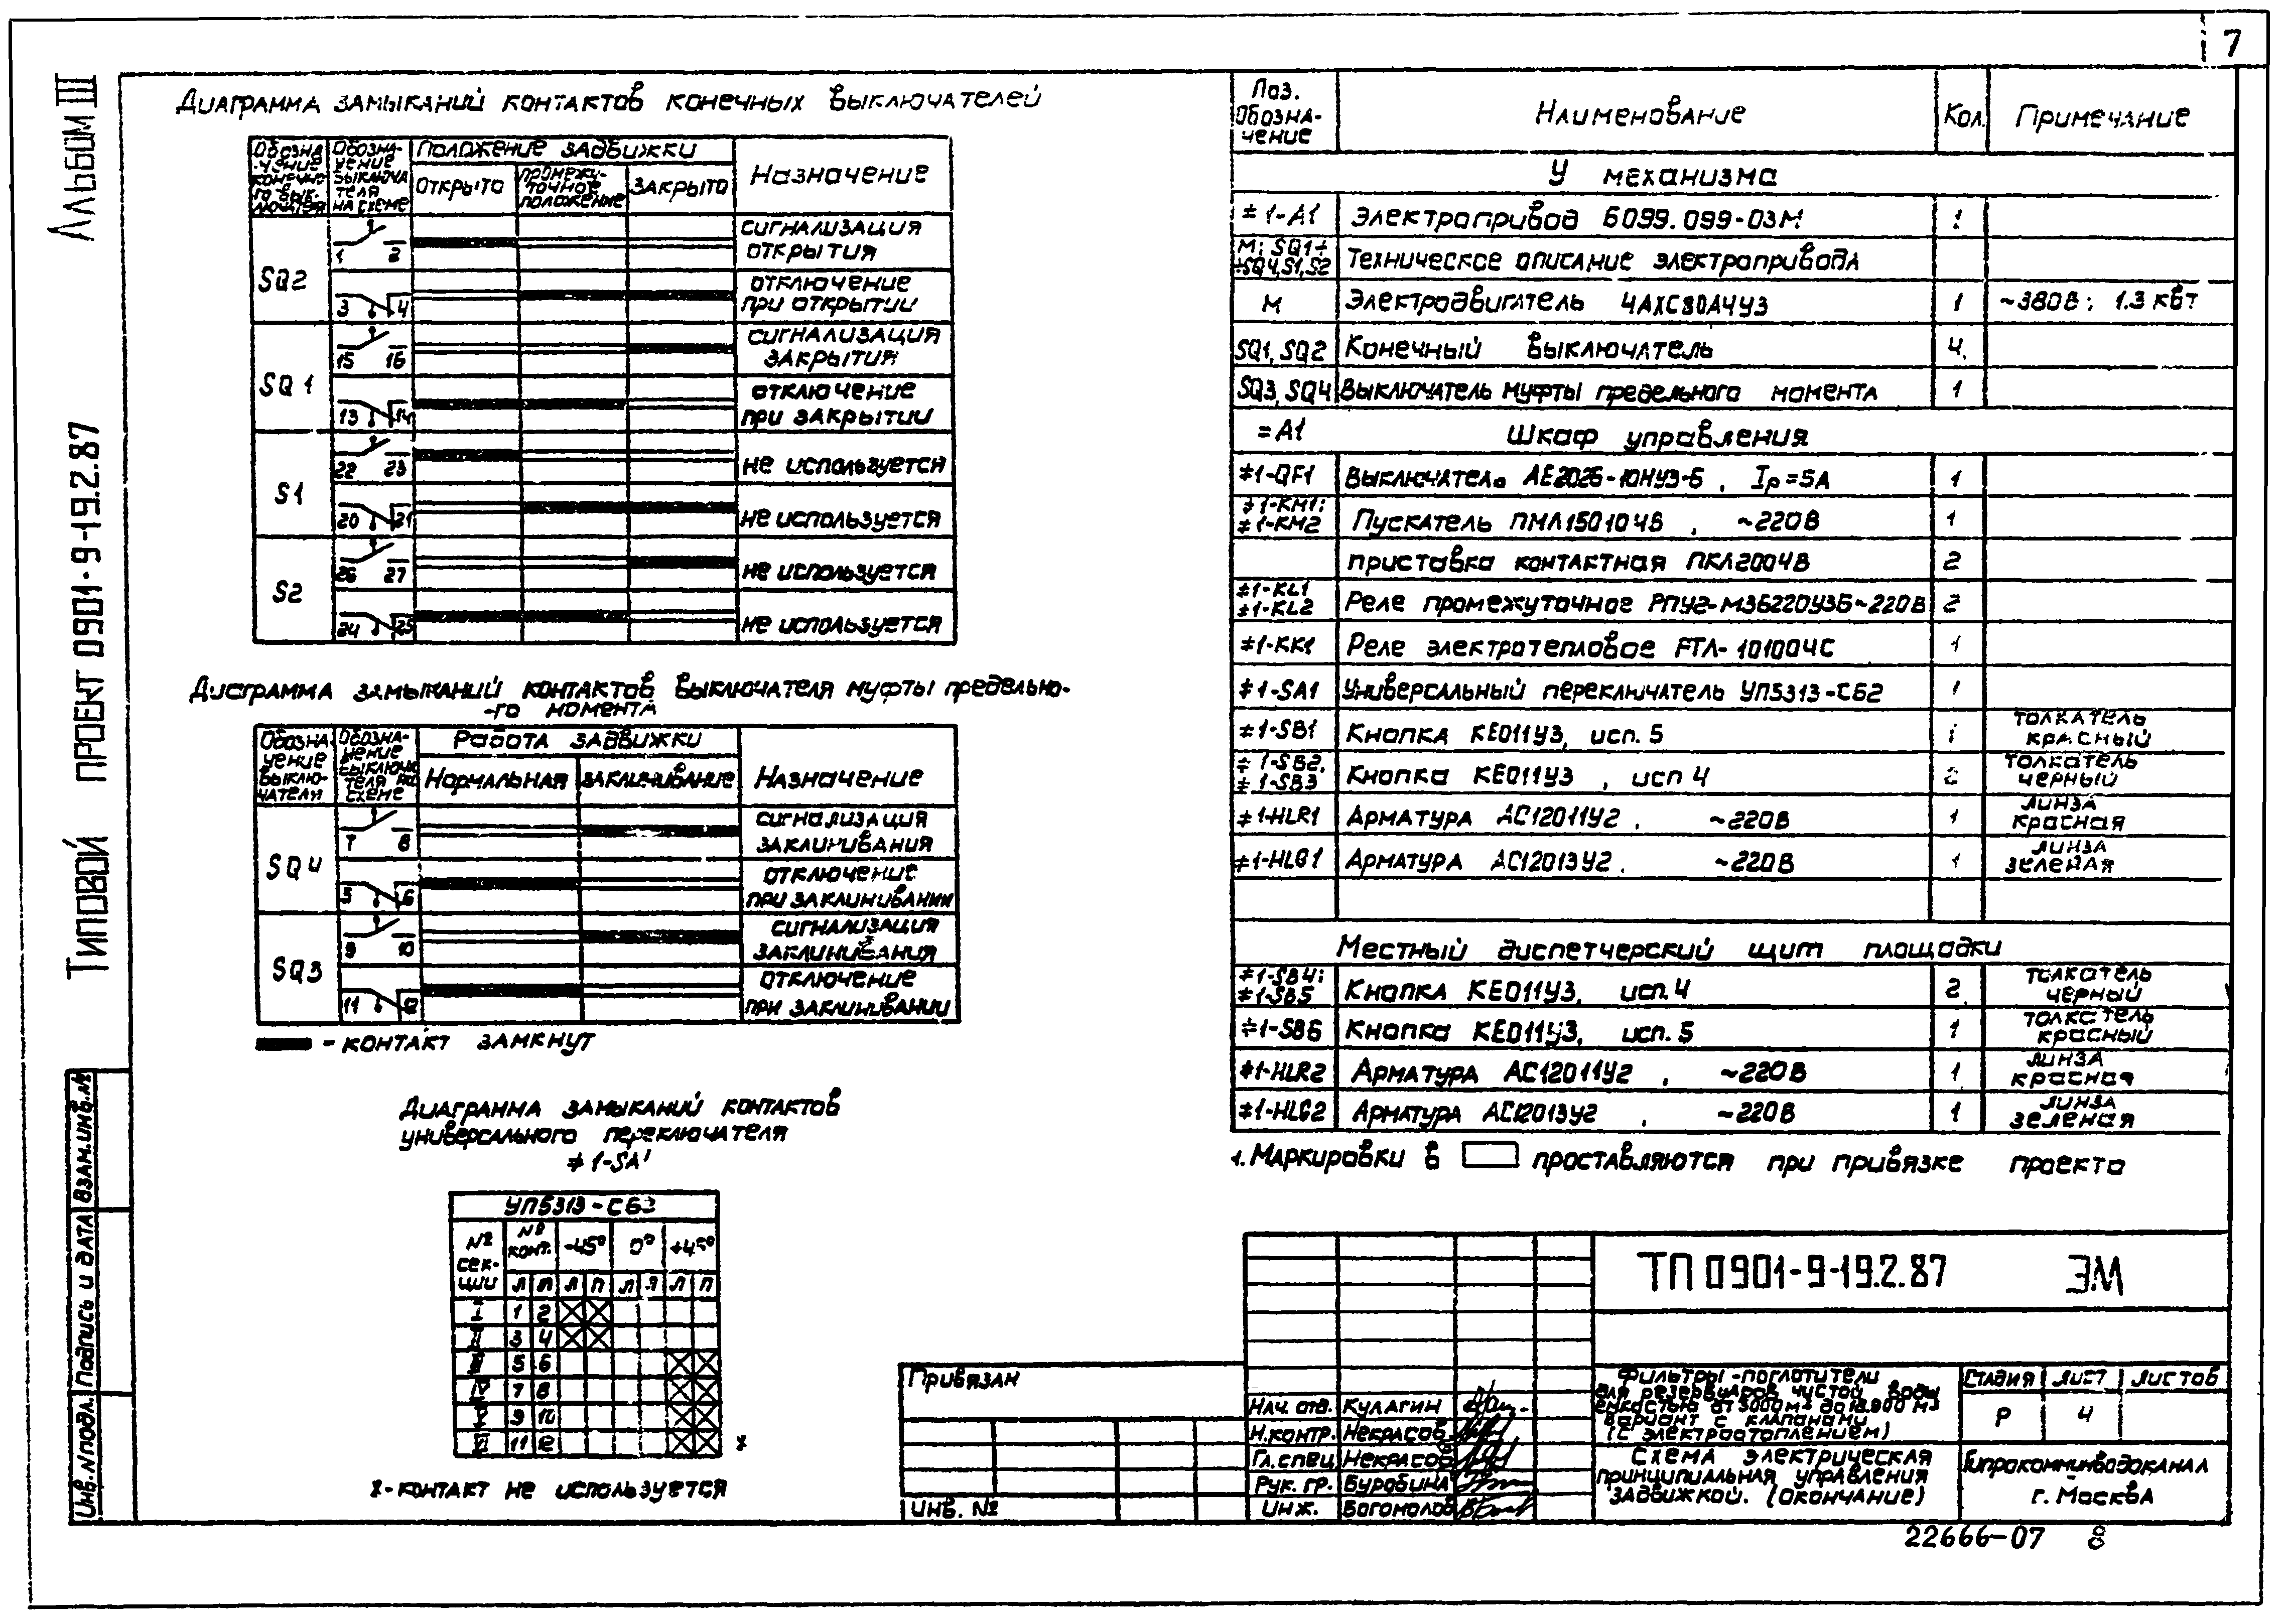 7
Альбом III
Типовой проект 0901-9-19.2.87
Диаграмма замыканий контактов конечных выключателей
Обозна-
чение
конечно-
го вык-
лючателя
Обозна-
чение
выключа
теля
на схеме
Положение задвижки
открыто
промежу-
точное
положение
закрыто
Назначение
SQ2
1 2
сигнализация
открытия
3 4
отключение
при открытии
SQ1
15 16
сигнализация
закрытия
13 14
отключение
при закрытии
S1
22 23
не используется
20 21
не используется
S2
26 27
не используется
24 25
не используется
Диаграмма замыканий контактов выключателя муфты предельно-
-го момента
Обозна-
чение
выклю-
чателя
Обозна-
чение
выключа
теля на
схеме
Работа задвижки
Нормальная
заклинивание
Назначение
SQ4
7 8
сигнализация
заклинивания
5 6
отключение
при заклинивании
SQ3
9 10
сигнализация
заклинивания
11 12
отключение
при заклинивании
- контакт замкнут
Диаграмма замыканий контактов
универсального переключателя
≠1-SA1
УП5313-С62
№
сек-
ции
№
конт.
-45° 0° +45°
Л П Л П Л П Л П
I 1 2
II 3 4
III 5 6
IV 7 8
V 9 10
VI 11 12 x
x-контакт не используется
Поз.
обозна-
чение
Наименование
Кол.
Примечание
У механизма
≠1-A1 Электропривод Б099.099-03М 1
M; SQ1÷
÷SQ4,S1,S2 Техническое описание электропривода
М Электродвигатель 4АХС80А4У3 1 ~380В; 1.3 кВт
SQ1, SQ2 Конечный выключатель 4
SQ3, SQ4 Выключатель муфты предельного момента 1
=A1 Шкаф управления
≠1-QF1 Выключатель АЕ2026-10НУ3-Б, Iр=5А 1
≠1-KM1;
≠1-KM2 Пускатель ПМЛ150104В, ~220В 1
приставка контактная ПКЛ2004В 2
≠1-KL1
≠1-KL2 Реле промежуточное РПУ2-М36220У3Б~220В 2
≠1-KK1 Реле электротепловое РТЛ-101004С 1
≠1-SA1 Универсальный переключатель УП5313-С62 1
≠1-SB1 Кнопка КЕ011У3, исп. 5 1 толкатель
красный
≠1-SB2,
≠1-SB3 Кнопка КЕ011У3, исп 4 2 толкатель
черный
≠1-HLR1 Арматура АС12011У2, ~220В 1 линза
красная
≠1-HLG1 Арматура АС12013У2, ~220В 1 линза
зеленая
Местный диспетчерский щит площадки
≠1-SB4;
≠1-SB5 Кнопка КЕ011У3, исп. 4 2 толкатель
черный
≠1-SB6 Кнопка КЕ011У3, исп. 5 1 толкатель
красный
≠1-HLR2 Арматура АС12011У2, ~220В 1 линза
красная
≠1-HLG2 Арматура АС12013У2, ~220В 1 линза
зеленая
1. Маркировки в проставляются при привязке проекта
ТП 0901-9-19.2.87 ЭМ
Привязан
Инв. №
Нач. отд. Кулагин
Н.контр. Некрасов
Гл.спец Некрасов
Рук. гр. Буробина
Инж. Богомолов
Фильтры-поглотители
для резервуаров чистой воды
емкостью от 3000 м³ до 18.900 м³
Вариант с клапанами
(с электроотоплением)
Стадия Лист Листов
Р 4
Схема электрическая
принципиальная управления
задвижкой. (Окончание)
Гипрокоммунводоканал
г. Москва
Инв.№подл. Подпись и дата Взам.инв.№
22666-07 8